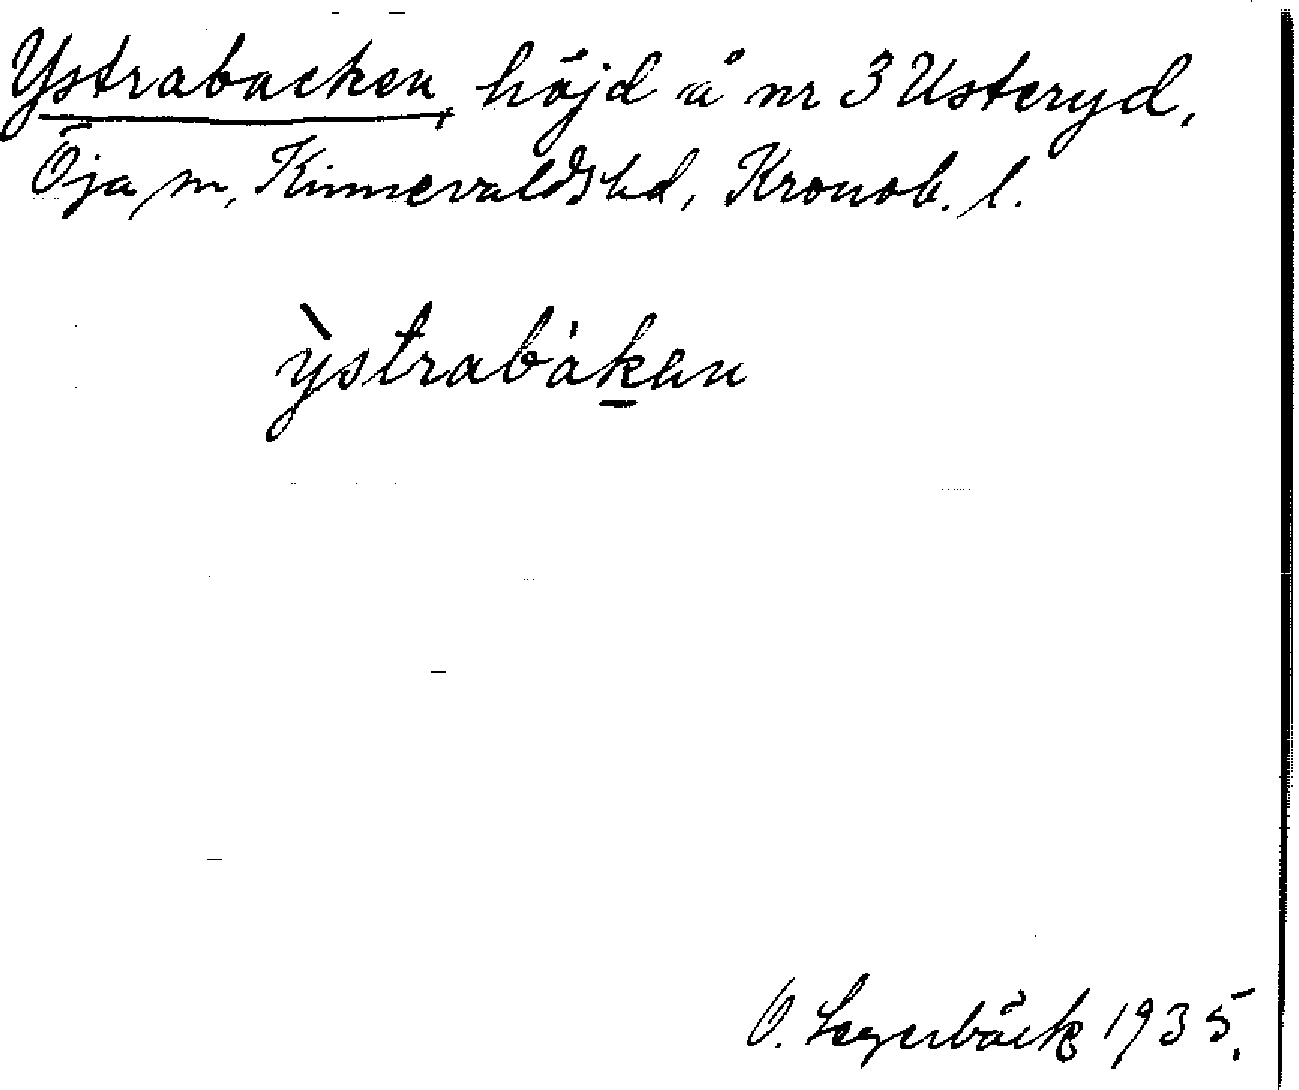 Ystrabacken, höjd å nr 3 Usteryd,
Öja sn, Kinnevalds hd, Kronob. l.
ỳstrabàkan
O. Legerbäck 1935.